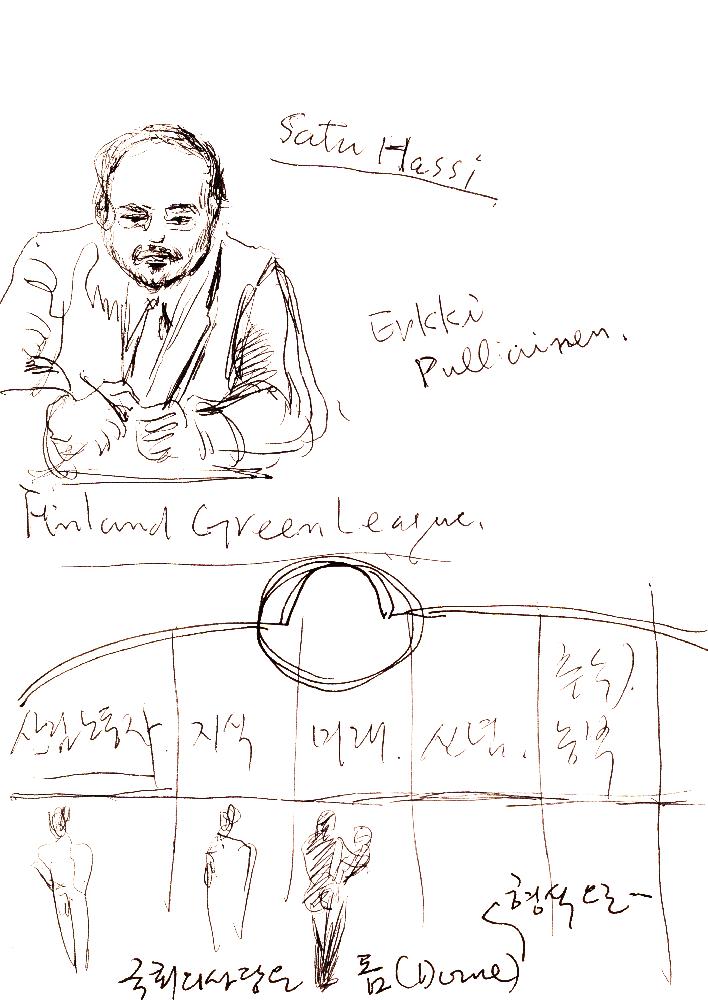 Satu Hassi
Erkki
Pulliainen.
Finland Green League.
추수).
산림노동자. 지식 미래. 신념. 농업
형식으로~
국회의사당도 돔(Dome)